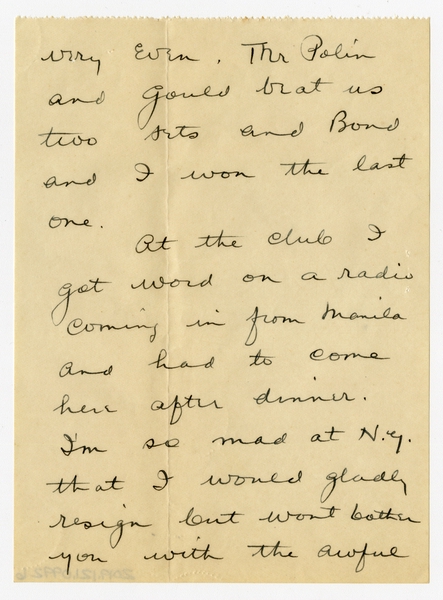 very even. The Polin
and Gould beat us
two sets and Bond
and I won the last
one.
At the club I
got word on a radio
coming in from Manila
and had to come
here after dinner.
I'm so mad at N.Y.
that I would gladly
resign but wont bother
you with the awful